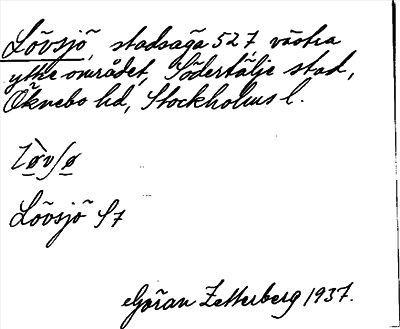 Lövsjö, stadsäga 527, västra
yttre området, Södertälje stad,
Öknebo hd, Stockholms l.
Lövsjö S7
Göran Zetterberg 1937.